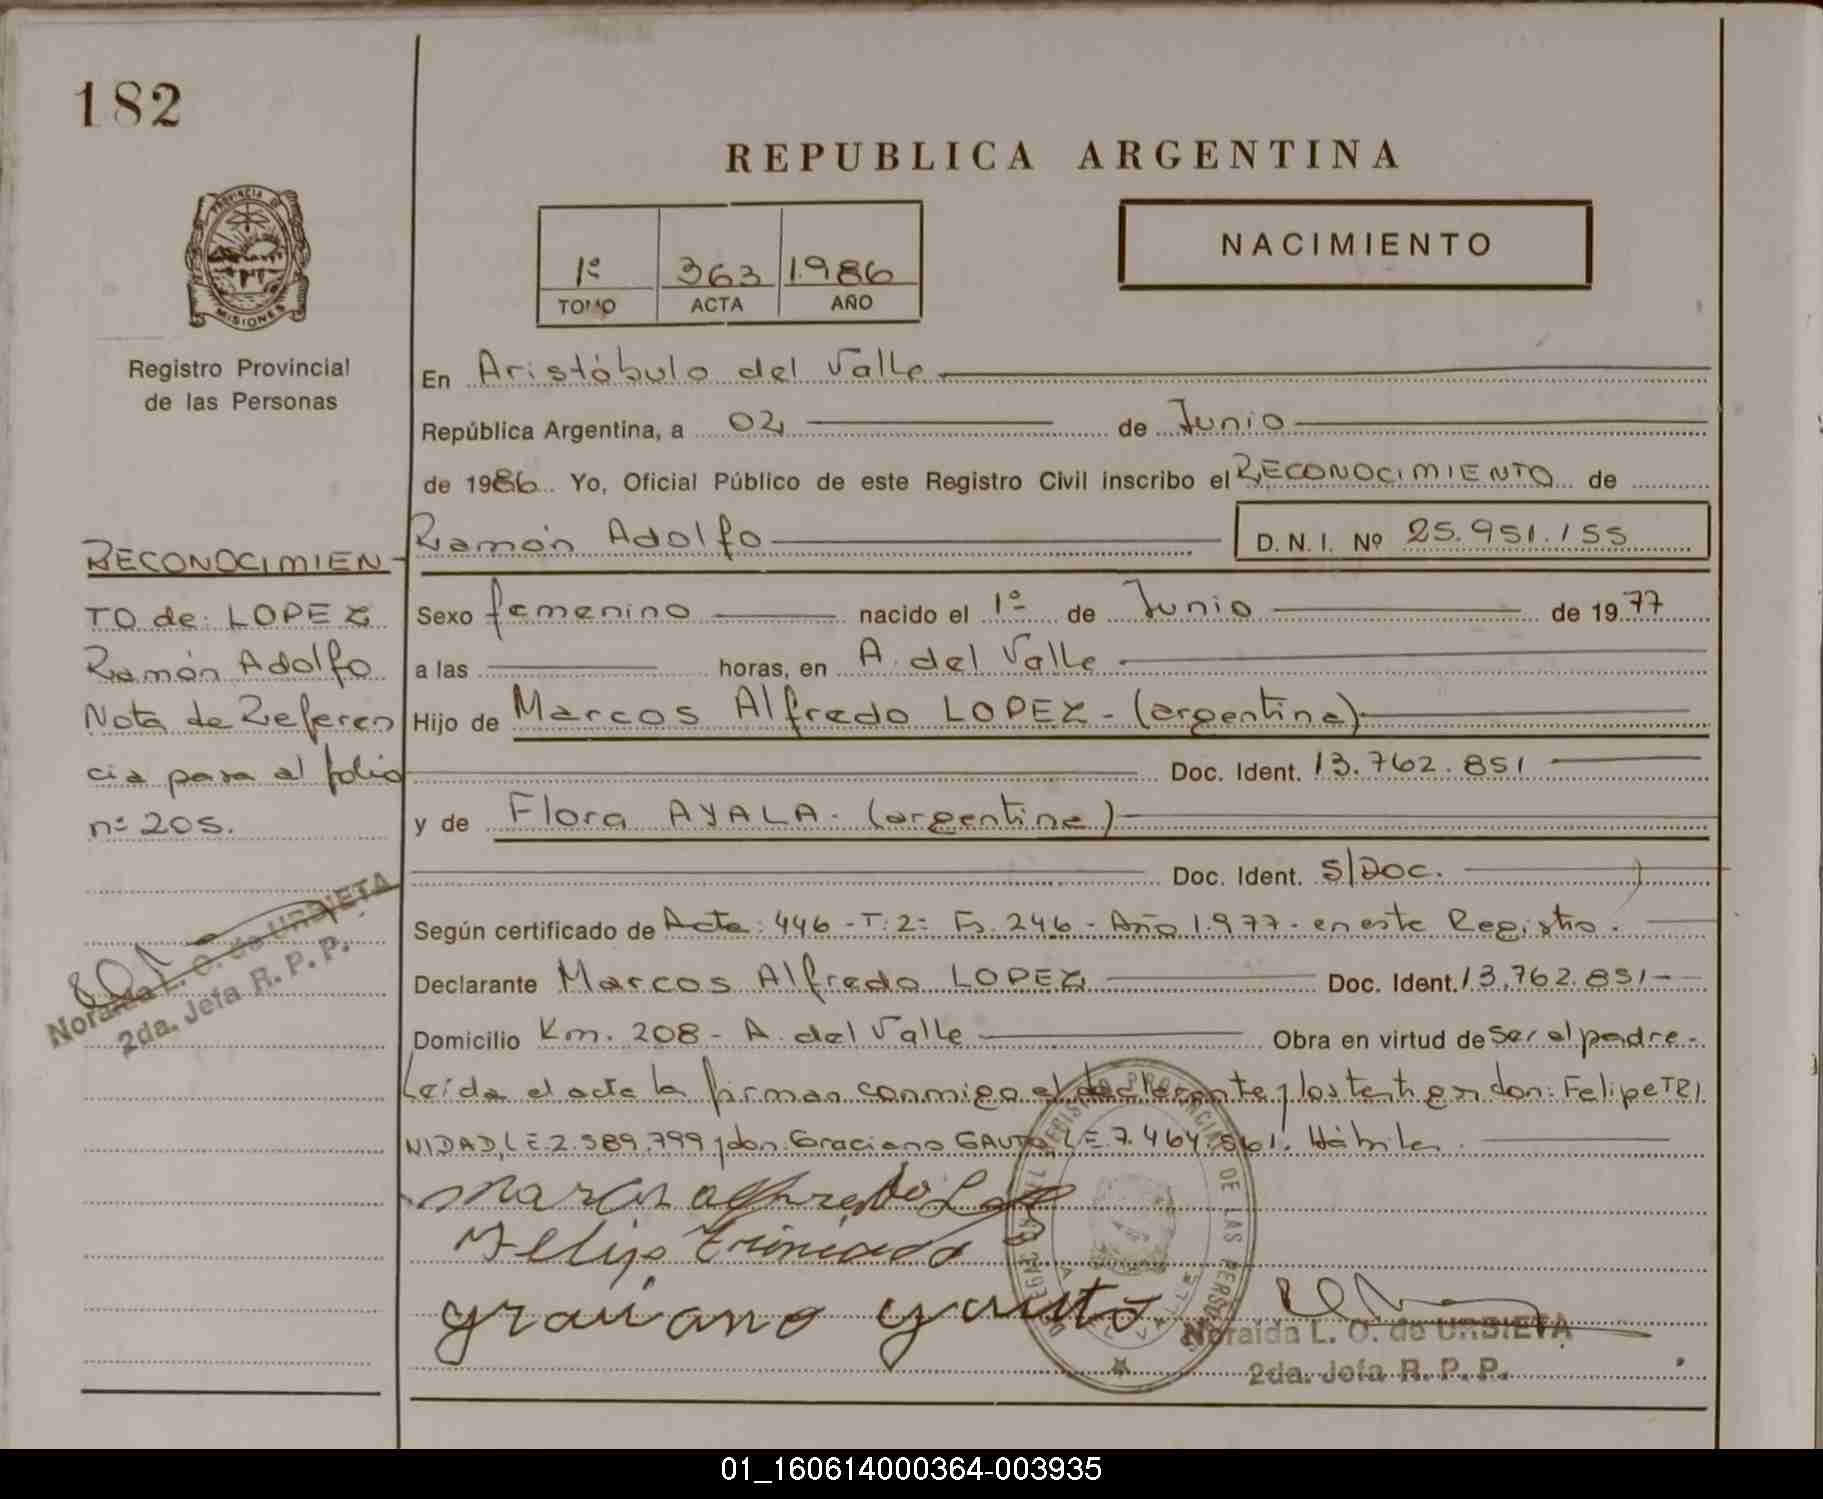 182
REPUBLICA ARGENTINA
PROVINCIA D
MISIONES
1º 363 1.986
TOMO ACTA AÑO
NACIMIENTO
Registro Provincial
de las Personas
En Aristóbulo del Valle
República Argentina, a 02 de Junio
de 1986 Yo, Oficial Público de este Registro Civil inscribo el RECONOCIMIENTO de
Ramón Adolfo D.N.I. Nº 25.951.155
Sexo femenino nacido el 1º de Junio de 1977
a las horas, en A. del Valle
Hijo de Marcos Alfredo LOPEZ - (argentina)
Doc. Ident. 13.762.851
y de Flora AYALA. (argentina)
Doc. Ident. S/Doc.
Según certificado de Acta: 446 - T: 2º Fs. 246 - Año 1.977 - en este Registro.
Declarante Marcos Alfredo LOPEZ Doc. Ident. 13.762.851-
Domicilio Km. 208 - A. del Valle Obra en virtud de ser el padre.-
Leída el acta la firman conmigo el declarante y los testigos don: Felipe TRI
NIDAD, L.E. 2.589.799 y don: Graciano GAUTO, L.E. 7.464.861. Hábiles.
Marcos Alfredo
Felipe Trinidad
graciano gauto
Noraida L. O. de URBIETA
2da. Jefa R. P. P.
RECONOCIMIEN-
TO de: LOPEZ
Ramón Adolfo
Nota de Referen
cia para al folio
nº 205.
Noraida L. O. de URBIETA
2da. Jefa R. P. P.
01_160614000364-003935